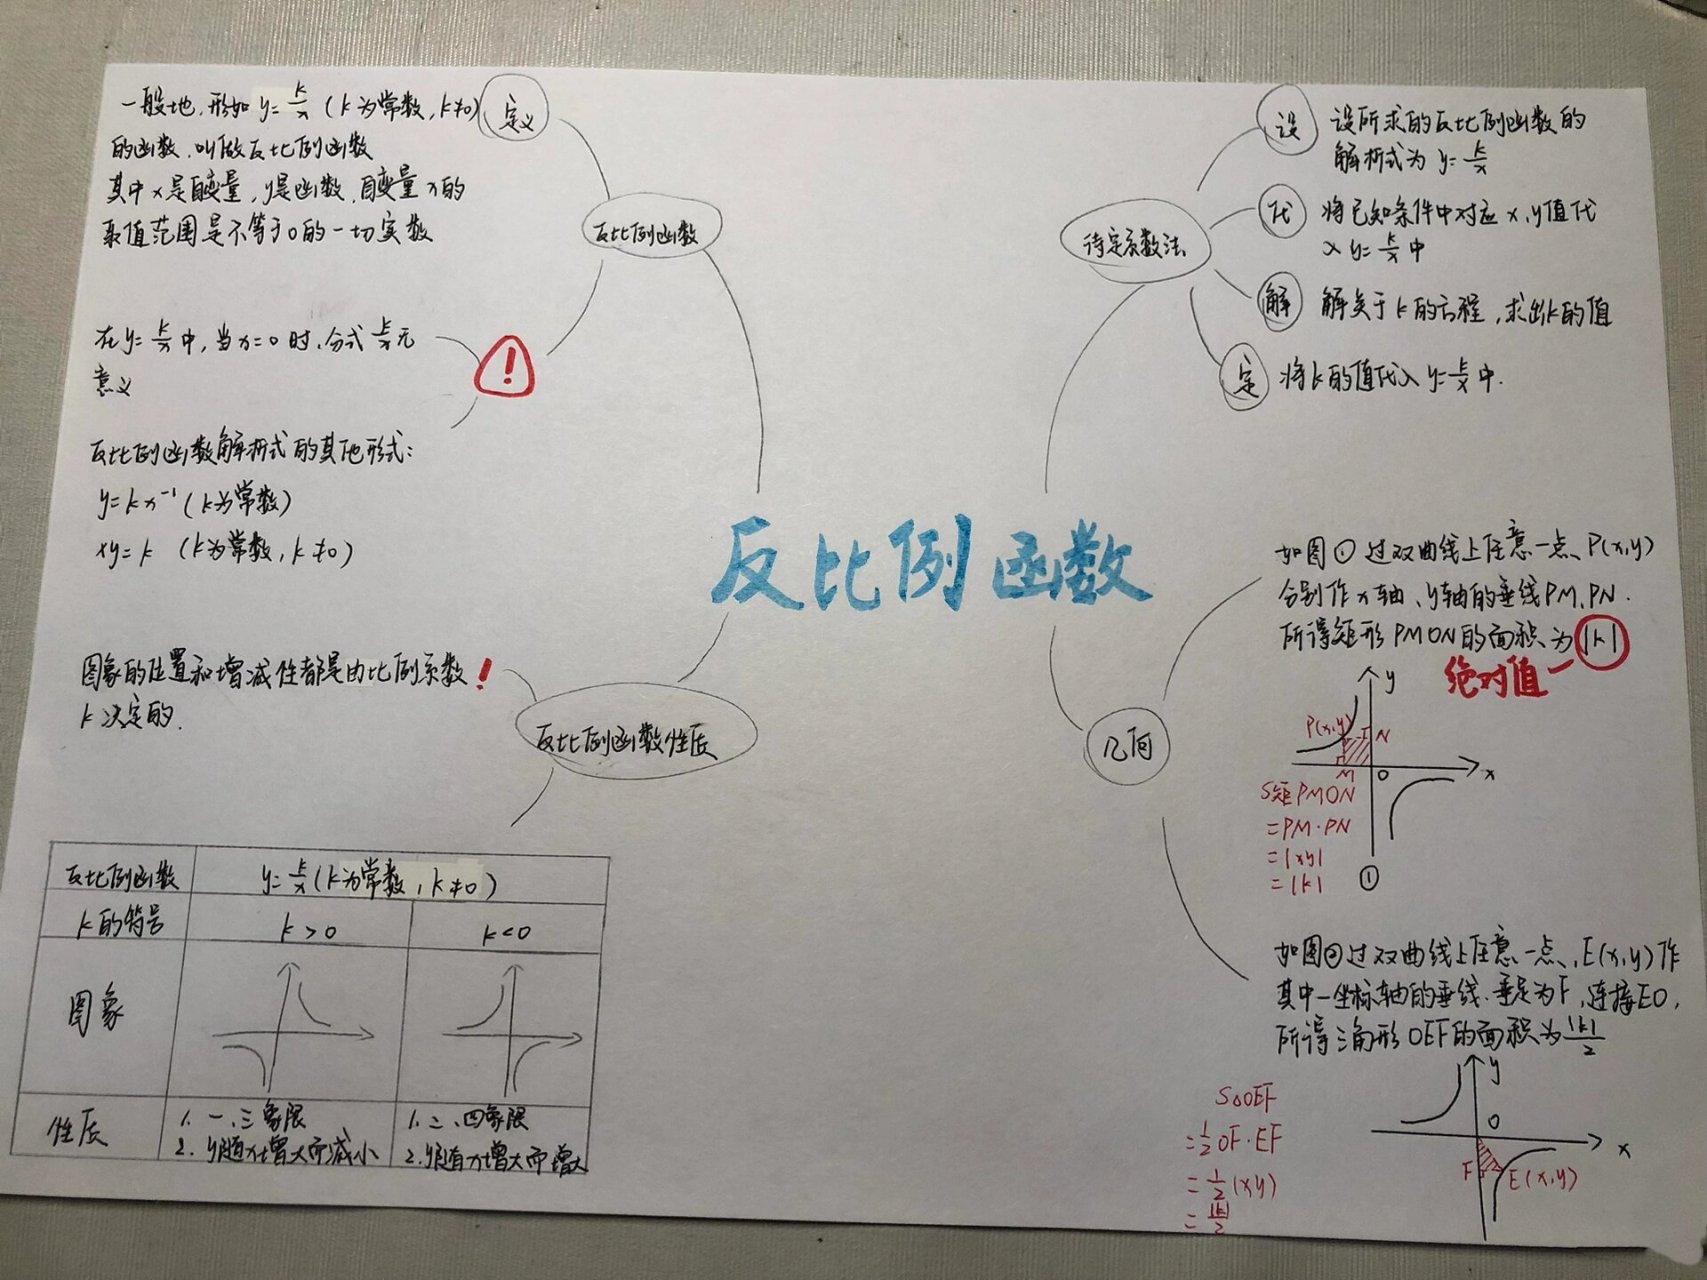 一般地,形如 y=k/x (k为常数,k≠0)
的函数,叫做反比例函数
其中x是自变量,y是函数,自变量x的
取值范围是不等于0的一切实数
定义
反比例函数
在y=k/x中,当x=0时,分式k/x无
意义
!
反比例函数解析式的其他形式:
y=kx⁻¹(k为常数)
xy=k (k为常数,k≠0)
反比例函数
图象的位置和增减性都是由比例系数!
k决定的.
反比例函数性质
反比例函数 y=k/x(k为常数,k≠0)
k的符号 k>0 k<0
图象
性质
1. 一、三象限
2. y随x增大而减小
1. 二、四象限
2. y随x增大而增大
待定系数法
设 设所求的反比例函数的
解析式为 y=k/x
代 将已知条件中对应x,y值代
入 y=k/x中
解 解关于k的方程,求出k的值
定 将k的值代入 y=k/x中.
几何
如图①过双曲线上任意一点P(x,y)
分别作x轴、y轴的垂线PM,PN.
所得矩形PMON的面积为|k|
绝对值
y
P(x,y)
N
M
O
x
S矩PMON
=PM·PN
=|xy|
=|k|
①
如图②过双曲线上任意一点,E(x,y)作
其中一坐标轴的垂线.垂足为F,连接EO,
所得三角形OEF的面积为|k|/2
y
O
x
F
E(x,y)
S△OEF
=½OF·EF
=½(xy)
=|k|/2